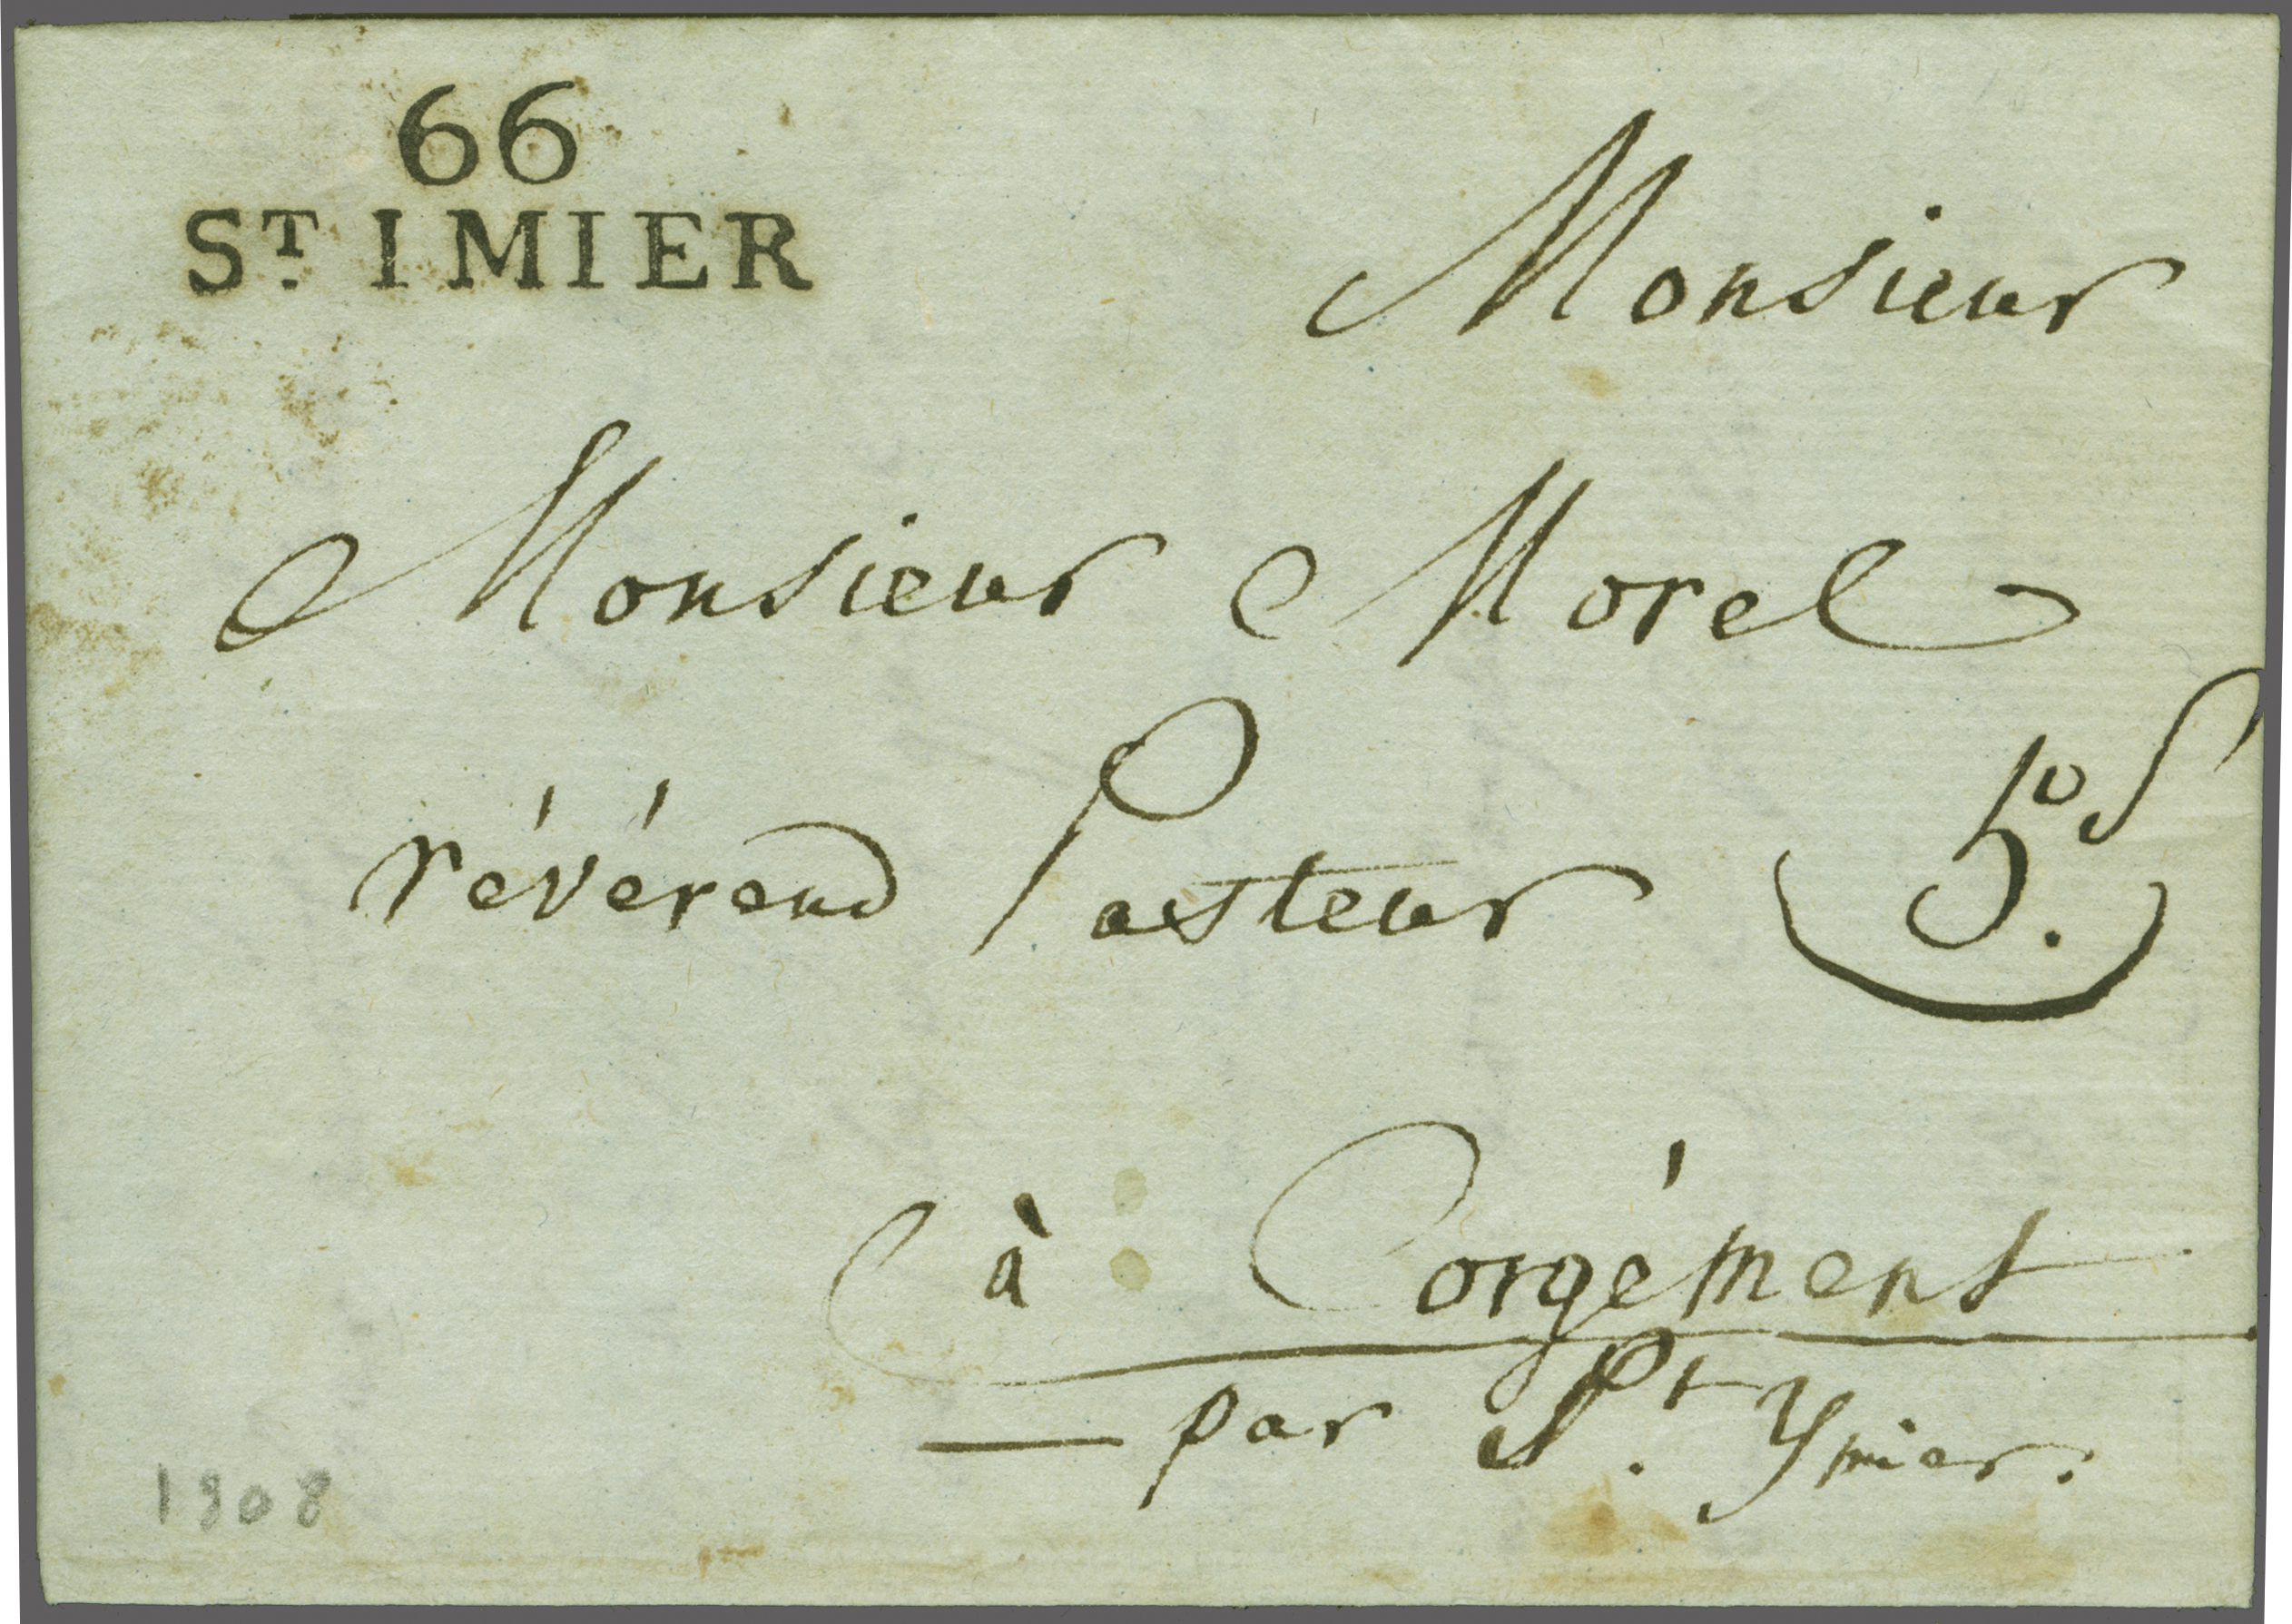 66
ST. IMIER
Monsieur
Monsieur Morel
révérend Pasteur
à Corgémont
par St. Ymier.
1808